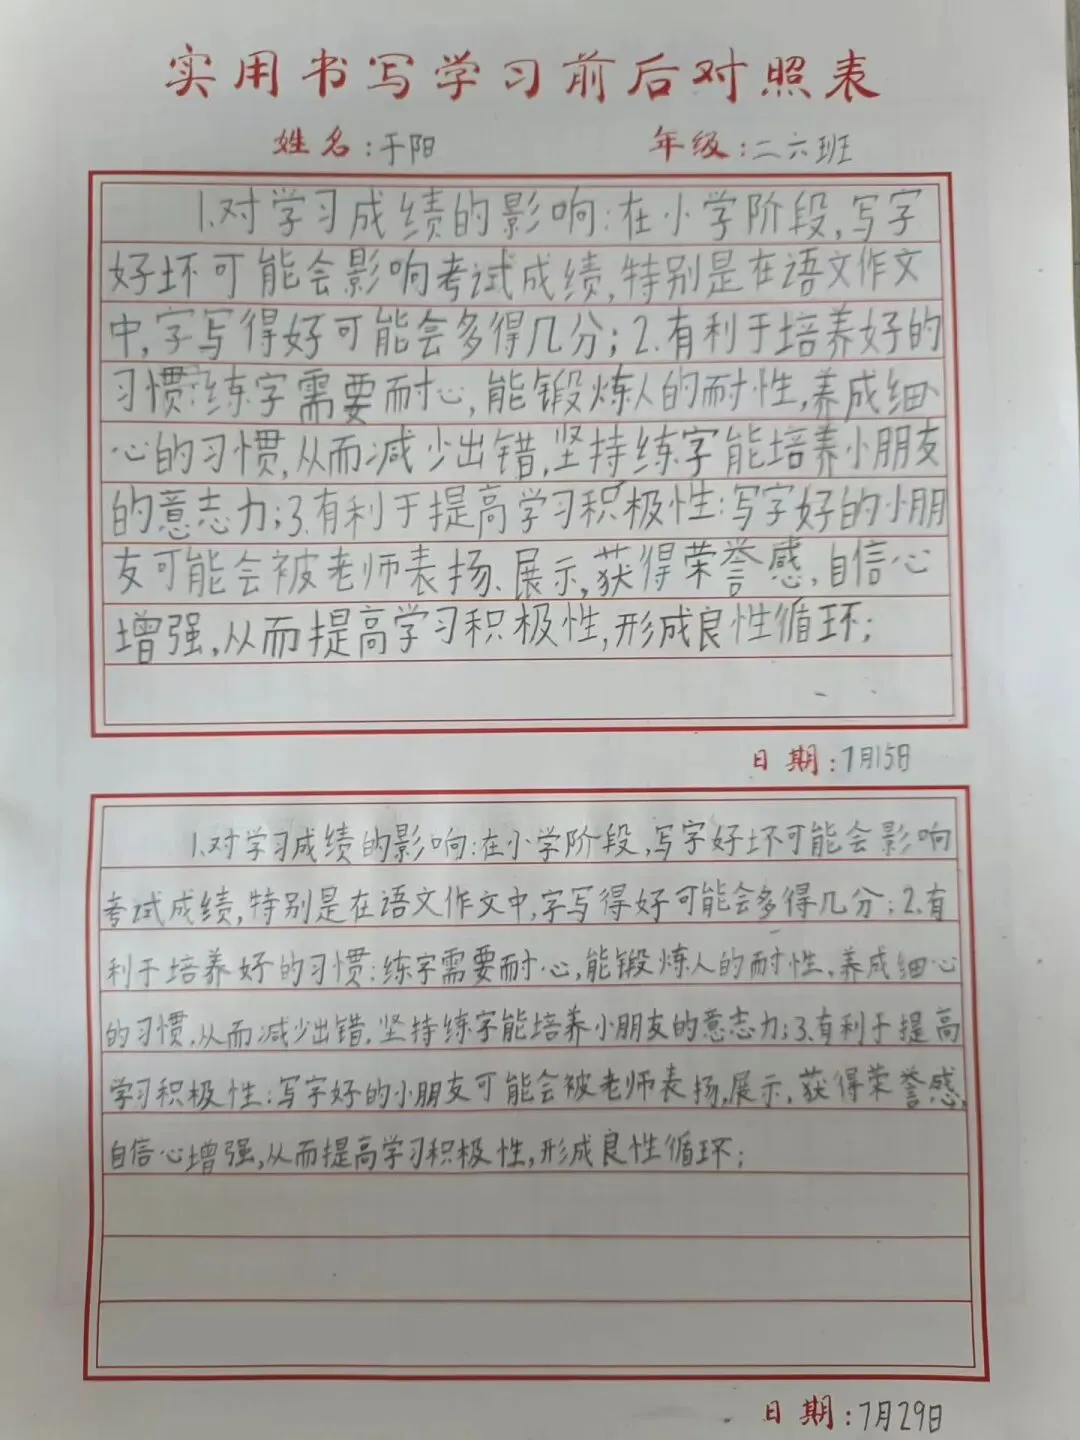 实用书写学习前后对照表
姓名:于阳 年级:二六班
1.对学习成绩的影响:在小学阶段,写字
好坏可能会影响考试成绩,特别是在语文作文
中,字写得好可能会多得几分;2.有利于培养好的
习惯:练字需要耐心,能锻炼人的耐性,养成细
心的习惯,从而减少出错,坚持练字能培养小朋友
的意志力;3.有利于提高学习积极性:写字好的小朋
友可能会被老师表扬、展示,获得荣誉感,自信心
增强,从而提高学习积极性,形成良性循环;
日期:7月15日
1.对学习成绩的影响:在小学阶段,写字好坏可能会影响
考试成绩,特别是在语文作文中,字写得好可能会多得几分;2.有
利于培养好的习惯:练字需要耐心,能锻炼人的耐性,养成细心
的习惯,从而减少出错,坚持练字能培养小朋友的意志力;3.有利于提高
学习积极性:写字好的小朋友可能会被老师表扬,展示,获得荣誉感,
自信心增强,从而提高学习积极性,形成良性循环;
日期:7月29日